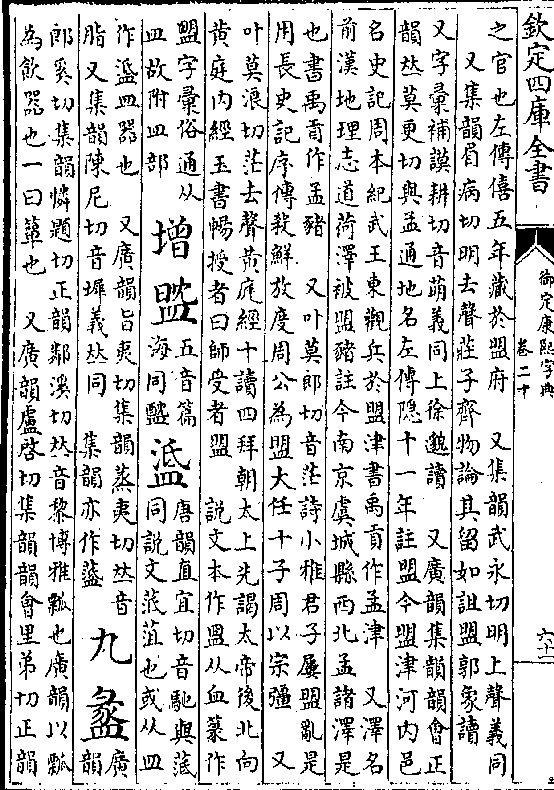 欽定四庫全書
御定康熙字典
卷二十
六十一
之官也左傳僖五年藏於盟府 又集韻武永切明上聲義同
又集韻眉病切明去聲莊子齊物論其留如詛盟郭象讀
又字彙補謨耕切音萌義同上徐邈讀 又廣韻集韻韻會正
韻𠀤莫更切與孟通地名左傳隱十一年註盟今盟津河内邑
名史記周本紀武王東觀兵於盟津書禹貢作孟津 又澤名
前漢地理志道荷澤被盟豬註今南京虞城縣西北孟諸澤是
也書禹貢作孟豬 又叶莫郎切音茫詩小雅君子屢盟亂是
用長史記序傳殺鮮放度周公為盟大任十子周以宗彊 又
叶莫浪切茫去聲黄庭經十讀四拜朝太上先謁太帝後北向
黄庭内經玉書暢授者曰師受者盟 說文本作𥁰从血篆作
盟字彙俗通从
皿故附皿部
增
五音篇
海同
唐韻直宜切音馳與
同說文 菹也或从皿
作 皿器也 又廣韻旨夷切集韻蒸夷切𠀤音
脂又集韻陳尼切音墀義𠀤同 集韻亦作
九
盠
廣
韻
郎奚切集韻憐題切正韻鄰溪切𠀤音黎博雅瓢也廣韻以瓢
為飲器也一曰簞也 又廣韻盧啓切集韻韻會里弟切正韻